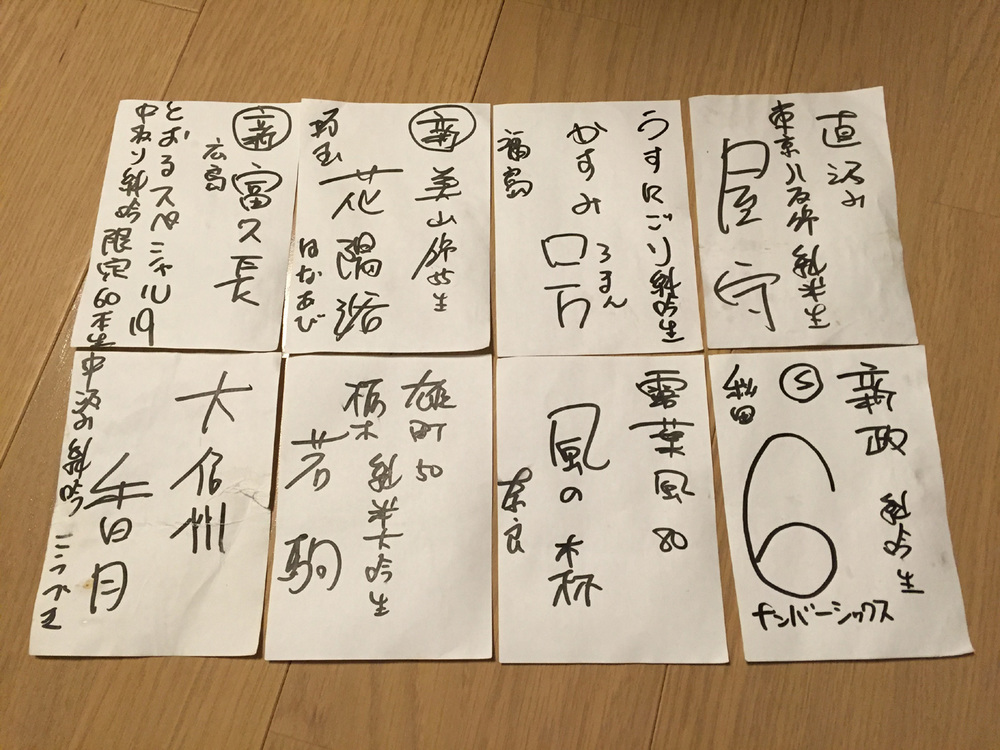 直汲み
東京八反錦 純米生
屋守
うすにごり純吟生
かすみ
ろまん
ロ万
福島
新
美山錦55生
花陽浴
はなあび
埼玉
新
富久長
広島
とおるスペシャル19
中取り純吟限定60本生
新政 純吟生
S
6
ナンバーシックス
秋田
露葉風80
風の森
奈良
雄町50
純米大吟生
栃木
若駒
大信州
香月
中汲み純吟